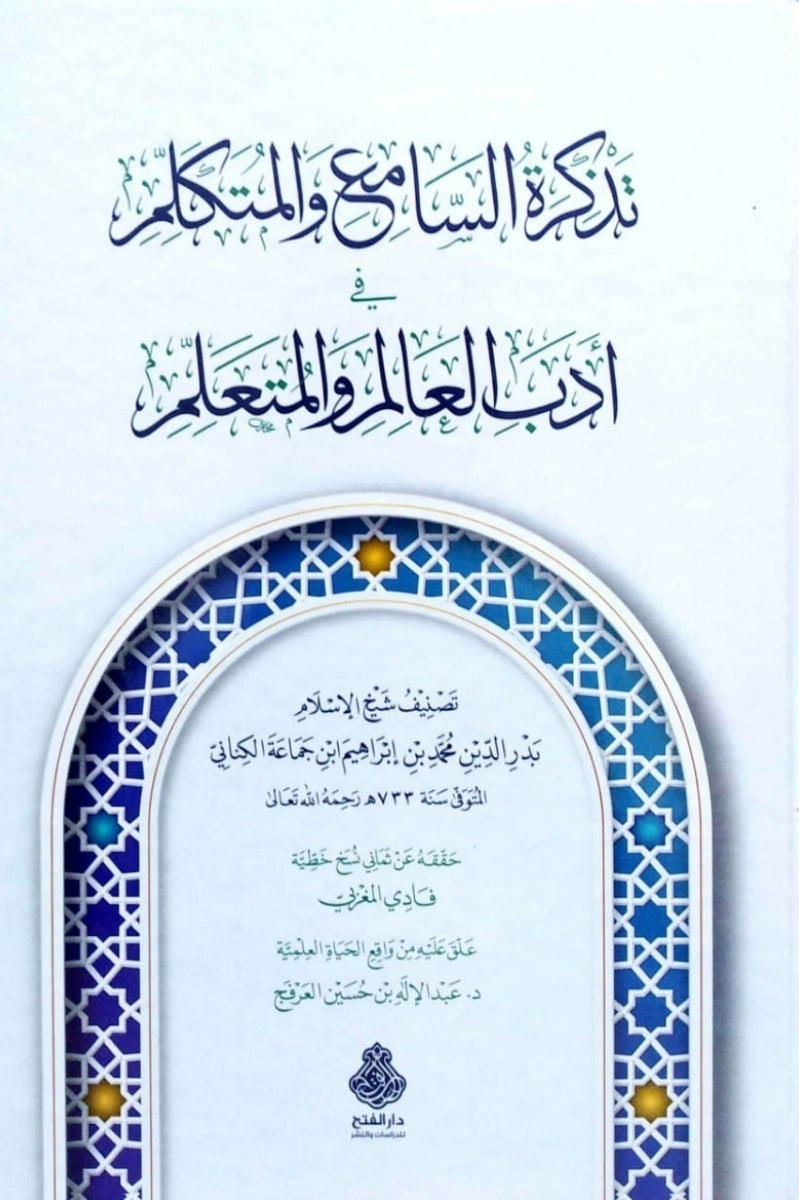 تَذْكِرَةُ السَّامِعِ وَالْمُتَكَلِّمِ
في
أَدَبِ العَالِمِ وَالمُتَعَلِّمِ
تَصْنِيفُ شَيْخِ الإِسْلَامِ
بَدْرِ الدِّيْنِ مُحَمَّدِ بْنِ إِبْرَاهِيمَ ابْنِ جَمَاعَةَ الكِنَانِيِّ
المُتَوَفَّى سَنَة ٧٣٣هـ رَحِمَهُ اللهُ تَعَالَى
حَقَّقَهُ عَنْ ثَمَانِي نُسَخٍ خَطِّيَّة
فَادِي المَغْرِبِيّ
عَلَّقَ عَلَيْهِ مِنْ وَاقِعِ الحَيَاةِ العِلْمِيَّةِ
د. عَبْد الإِلَهِ بْن حُسَيْن العَرْفَج
دار الفتح
للدراسات والنشر